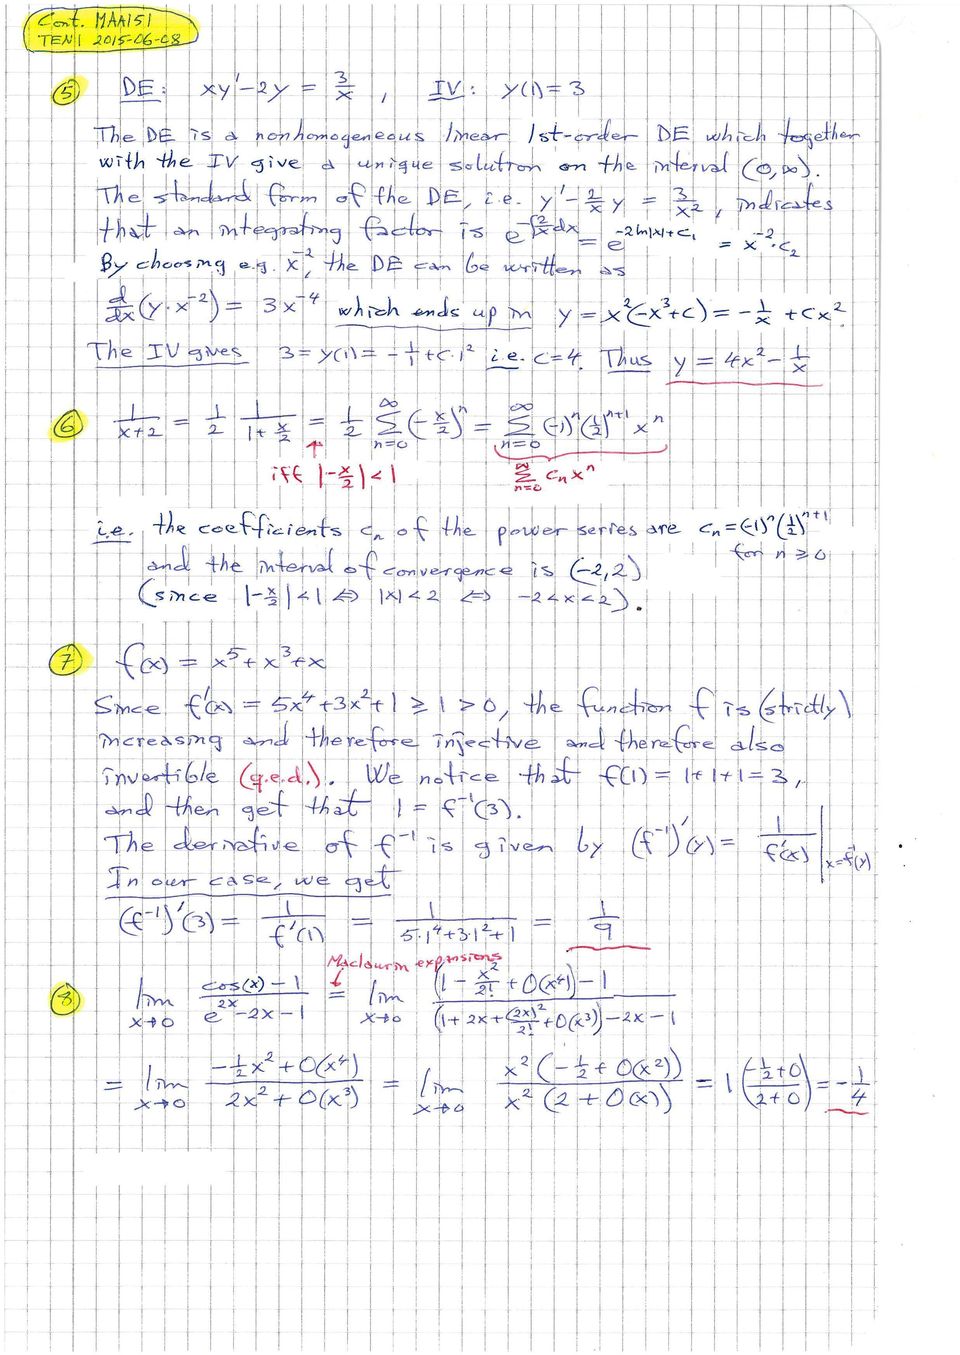 Cont. MAA151
TEN1 2015-06-08
⑤ DE: xy' - 2y = 3/x , IV: y(1) = 3
The DE is a nonhomogeneous linear 1st-order DE which together
with the IV give a unique solution on the interval (0,∞).
The standard form of the DE, i.e. y' - 2/x y = 3/x², indicates
that an integrating factor is e^(-∫2/x dx) = e^(-2ln|x|+C₁) = x⁻²·C₂
By choosing e.g. x⁻², the DE can be written as
d/dx (y·x⁻²) = 3x⁻⁴ which ends up in y = x²(-x⁻³+C) = -1/x + Cx².
The IV gives 3 = y(1) = -1/1 + C·1² i.e. C=4. Thus y = 4x² - 1/x
⑥ 1/(x+2) = 1/2 · 1/(1+x/2) = 1/2 ∑_{n=0}^{∞} (-x/2)ⁿ = ∑_{n=0}^{∞} (-1)ⁿ(1/2)ⁿ⁺¹ xⁿ
↑
iff |-x/2| < 1 ∑_{n=0}^{∞} cₙxⁿ
i.e. the coefficients cₙ of the power series are cₙ = (-1)ⁿ(1/2)ⁿ⁺¹
for n ≥ 0
and the interval of convergence is (-2,2)
(since |-x/2| < 1 ⇔ |x| < 2 ⇔ -2 < x < 2).
⑦ f(x) = x⁵ + x³ + x
Since f'(x) = 5x⁴ + 3x² + 1 ≥ 1 > 0, the function f is (strictly)
increasing and therefore injective and therefore also
invertible (q.e.d.). We notice that f(1) = 1+1+1 = 3,
and then get that 1 = f⁻¹(3).
The derivative of f⁻¹ is given by (f⁻¹)'(y) = 1/f'(x) |x=f⁻¹(y)
In our case, we get
(f⁻¹)'(3) = 1/f'(1) = 1/(5·1⁴+3·1²+1) = 1/9
Maclaurin expansions
⑧ lim_{x→0} (cos(x) - 1)/(e^(2x) - 2x - 1) = lim_{x→0} ((1 - x²/2! + O(x⁴)) - 1)/((1 + 2x + (2x)²/2! + O(x³)) - 2x - 1)
= lim_{x→0} (-½x² + O(x⁴))/(2x² + O(x³)) = lim_{x→0} x²(-½ + O(x²))/x²(2 + O(x)) = 1((-½+0)/(2+0)) = -1/4